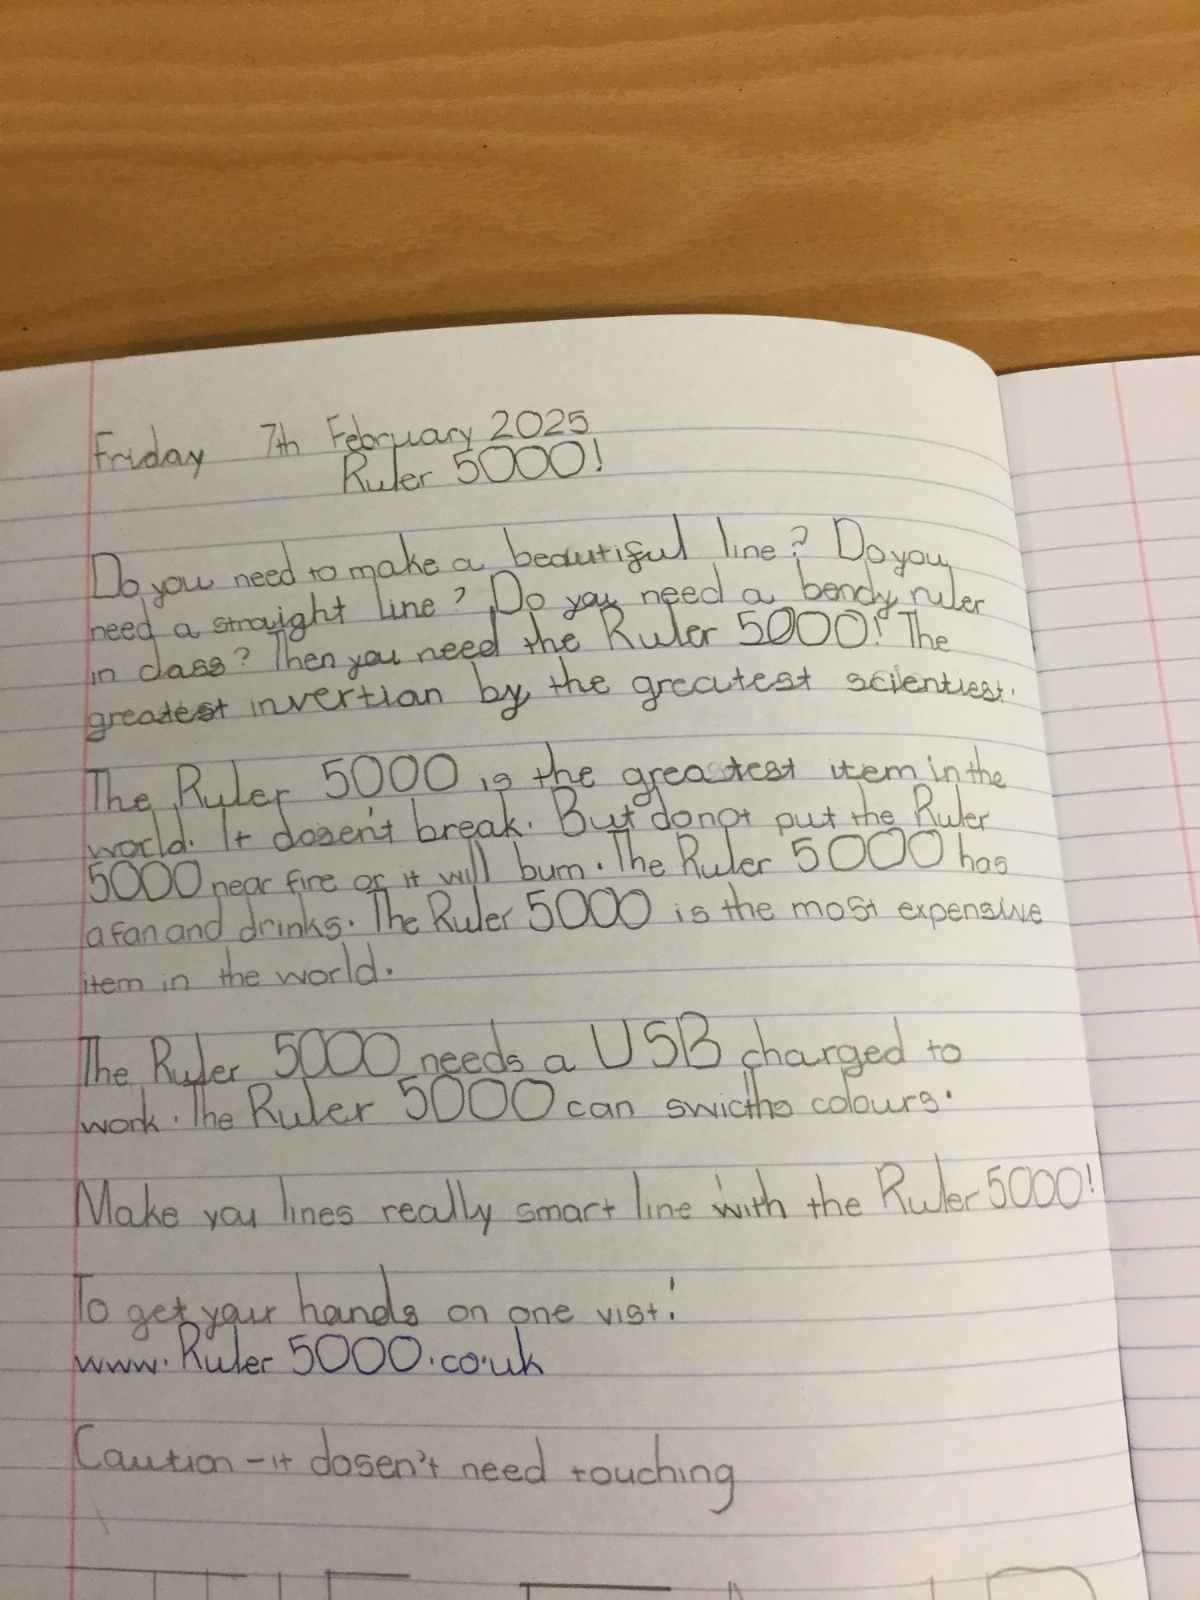 Friday 7th February 2025
Ruler 5000!
Do you need to make a beautiful line? Do you
need a straight line? Do you need a bendy ruler
in class? Then you need the Ruler 5000! The
greatest invertian by the greatest scientiest.
The Ruler 5000 is the greatest item in the
world. It dosen't break. But do not put the Ruler
5000 near fire or it will burn. The Ruler 5000 has
a fan and drinks. The Ruler 5000 is the most expensive
item in the world.
The Ruler 5000 needs a USB charged to
work. The Ruler 5000 can swicths colours.
Make you lines really smart line with the Ruler 5000!
To get your hands on one vist:
www.Ruler 5000.co.uk
Caution - it dosen't need touching